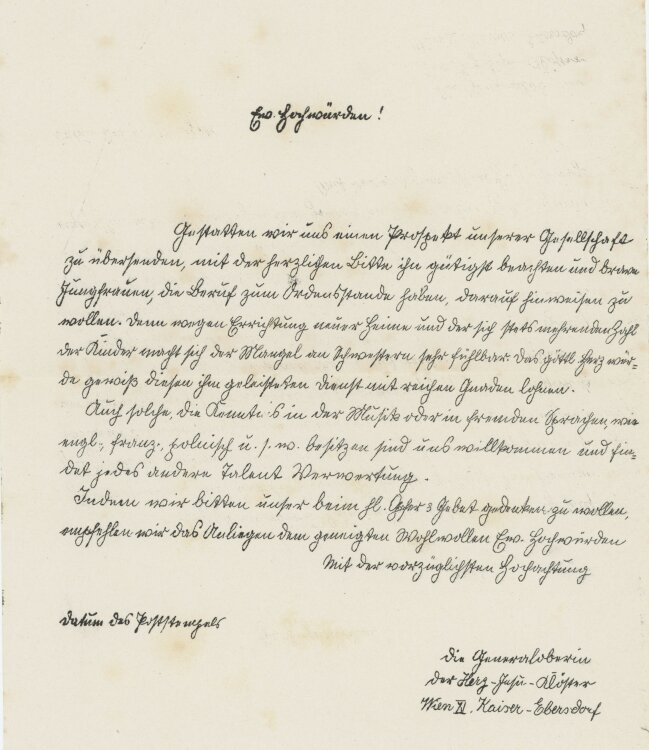 Ew. Hochwürden!
Gestatten wir uns einen Prospekt unserer Gesellschaft
zu übersenden, mit der herzlichen Bitte ihn gütigst beachten und brave
Jungfrauen, die Beruf zum Ordensstande haben, darauf hinweisen zu
wollen. Denn wegen Errichtung neuer Heime und der sich stets mehrenden Zahl
der Kinder macht sich der Mangel an Schwestern sehr fühlbar. Das göttl. Herz wür-
de gewiß diesen ihm geleisteten Dienst mit reichen Gnaden lohnen.
Auch solche, die Kenntnis in der Musik oder in fremden Sprachen, wie
engl., franz., polnisch u. s. w. besitzen sind uns willkommen und fin-
det jedes andere Talent Verwertung.
Indem wir bitten unser beim hl. Opfer & Gebet gedenken zu wollen,
empfehlen wir das Anliegen dem geneigten Wohlwollen Ew. Hochwürden
Mit der vorzüglichsten Hochachtung
Datum des Poststempels
die Generaloberin
der Herz-Jesu-Klöster
Wien XI. Kaiser-Ebersdorf